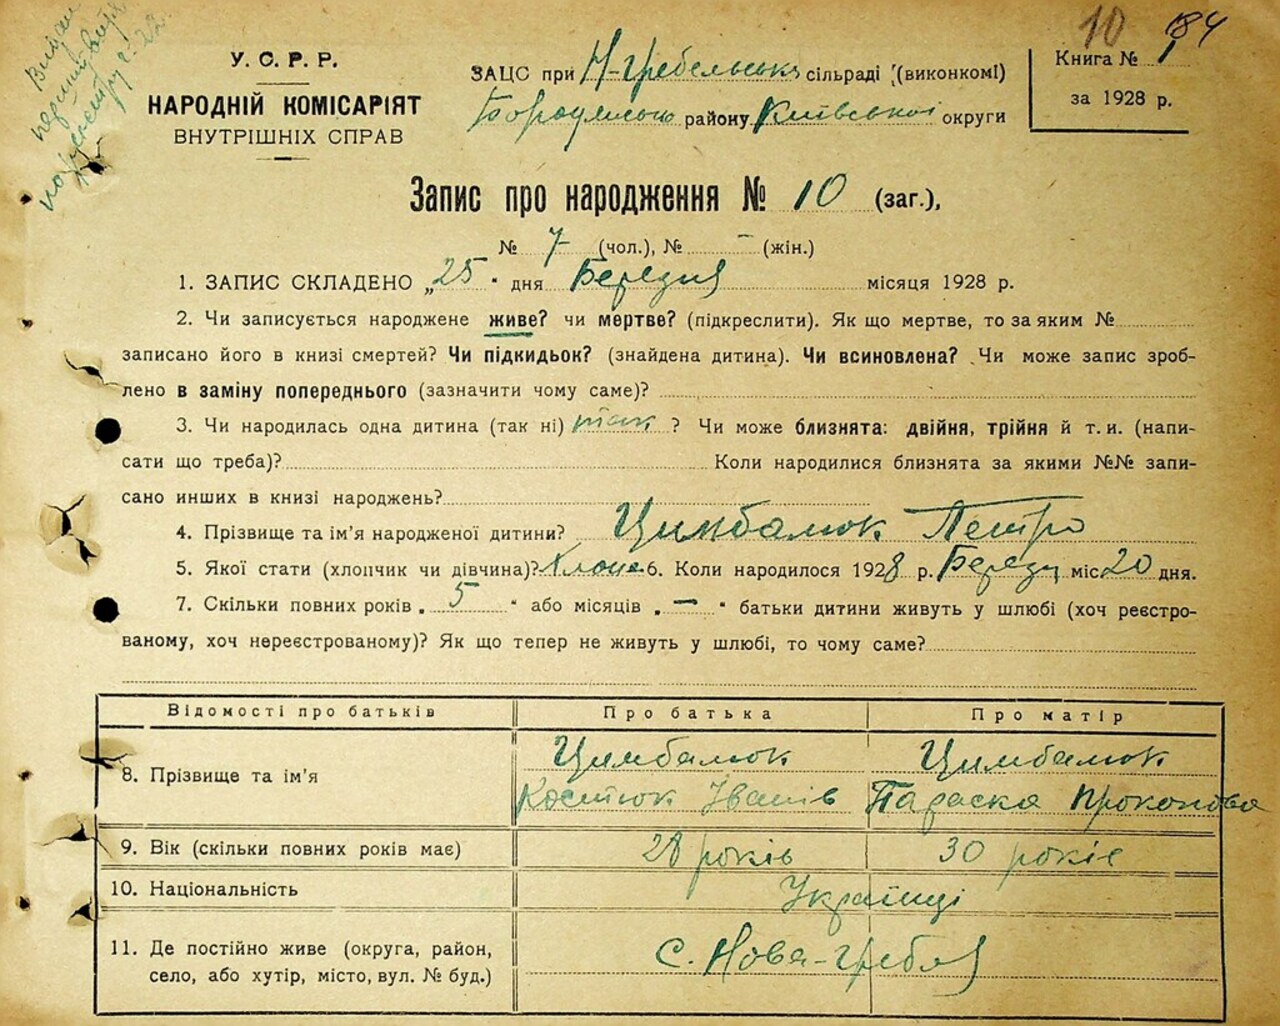 10 184
У. С. Р. Р.
НАРОДНІЙ КОМІСАРІЯТ
ВНУТРІШНІХ СПРАВ
ЗАЦС при Н-Гребельськ сільраді (виконкомі)
району Київської округи
Книга № 1
за 1928 р.
Запис про народження № 10 (заг.),
№ 7 (чол.), № – (жін.)
1. ЗАПИС СКЛАДЕНО „25 “ дня Березня місяця 1928 р.
2. Чи записується народжене живе? чи мертве? (підкреслити). Як що мертве, то за яким №
записано його в книзі смертей? Чи підкидьок? (знайдена дитина). Чи всиновлена? Чи може запис зроб-
лено в заміну попереднього (зазначити чому саме)?
3. Чи народилась одна дитина (так ні) так ? Чи може близнята: двійня, трійня й т. и. (напи-
сати що треба)? Коли народилися близнята за якими №№ запи-
сано инших в книзі народжень?
4. Прізвище та ім’я народженої дитини? Цимбалюк Петро
5. Якої стати (хлопчик чи дівчина)? Хлопч 6. Коли народилося 1928 р. Березня міс 20 дня.
7. Скільки повних років „ 5 “ або місяців „ – “ батьки дитини живуть у шлюбі (хоч реєстро-
ваному, хоч нереєстрованому)? Як що тепер не живуть у шлюбі, то чому саме?
Відомості про батьків Про батька Про матір
8. Прізвище та ім’я Цимбалюк Костюк Іванів Цимбалюк Параска Прокопова
9. Вік (скільки повних років має) 28 років 30 років
10. Національність Українці
11. Де постійно живе (округа, район,
село, або хутір, місто, вул. № буд.) с. Нова-Гребля